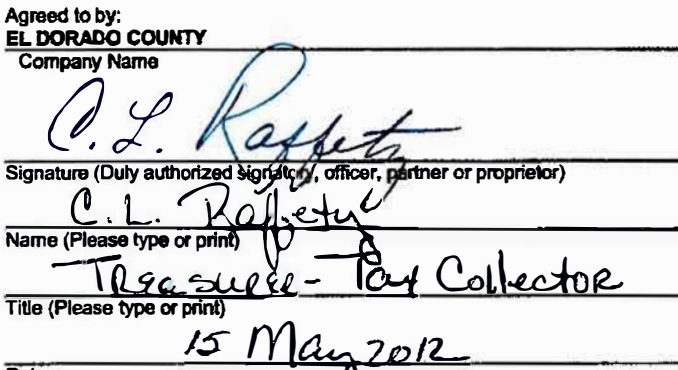 Agreed to by:
EL DORADO COUNTY
Company Name
C. L. Raffety
Signature (Duly authorized signatory, officer, partner or proprietor)
C. L. Raffety
Name (Please type or print)
Treasurer - Tax Collector
Title (Please type or print)
15 May 2012